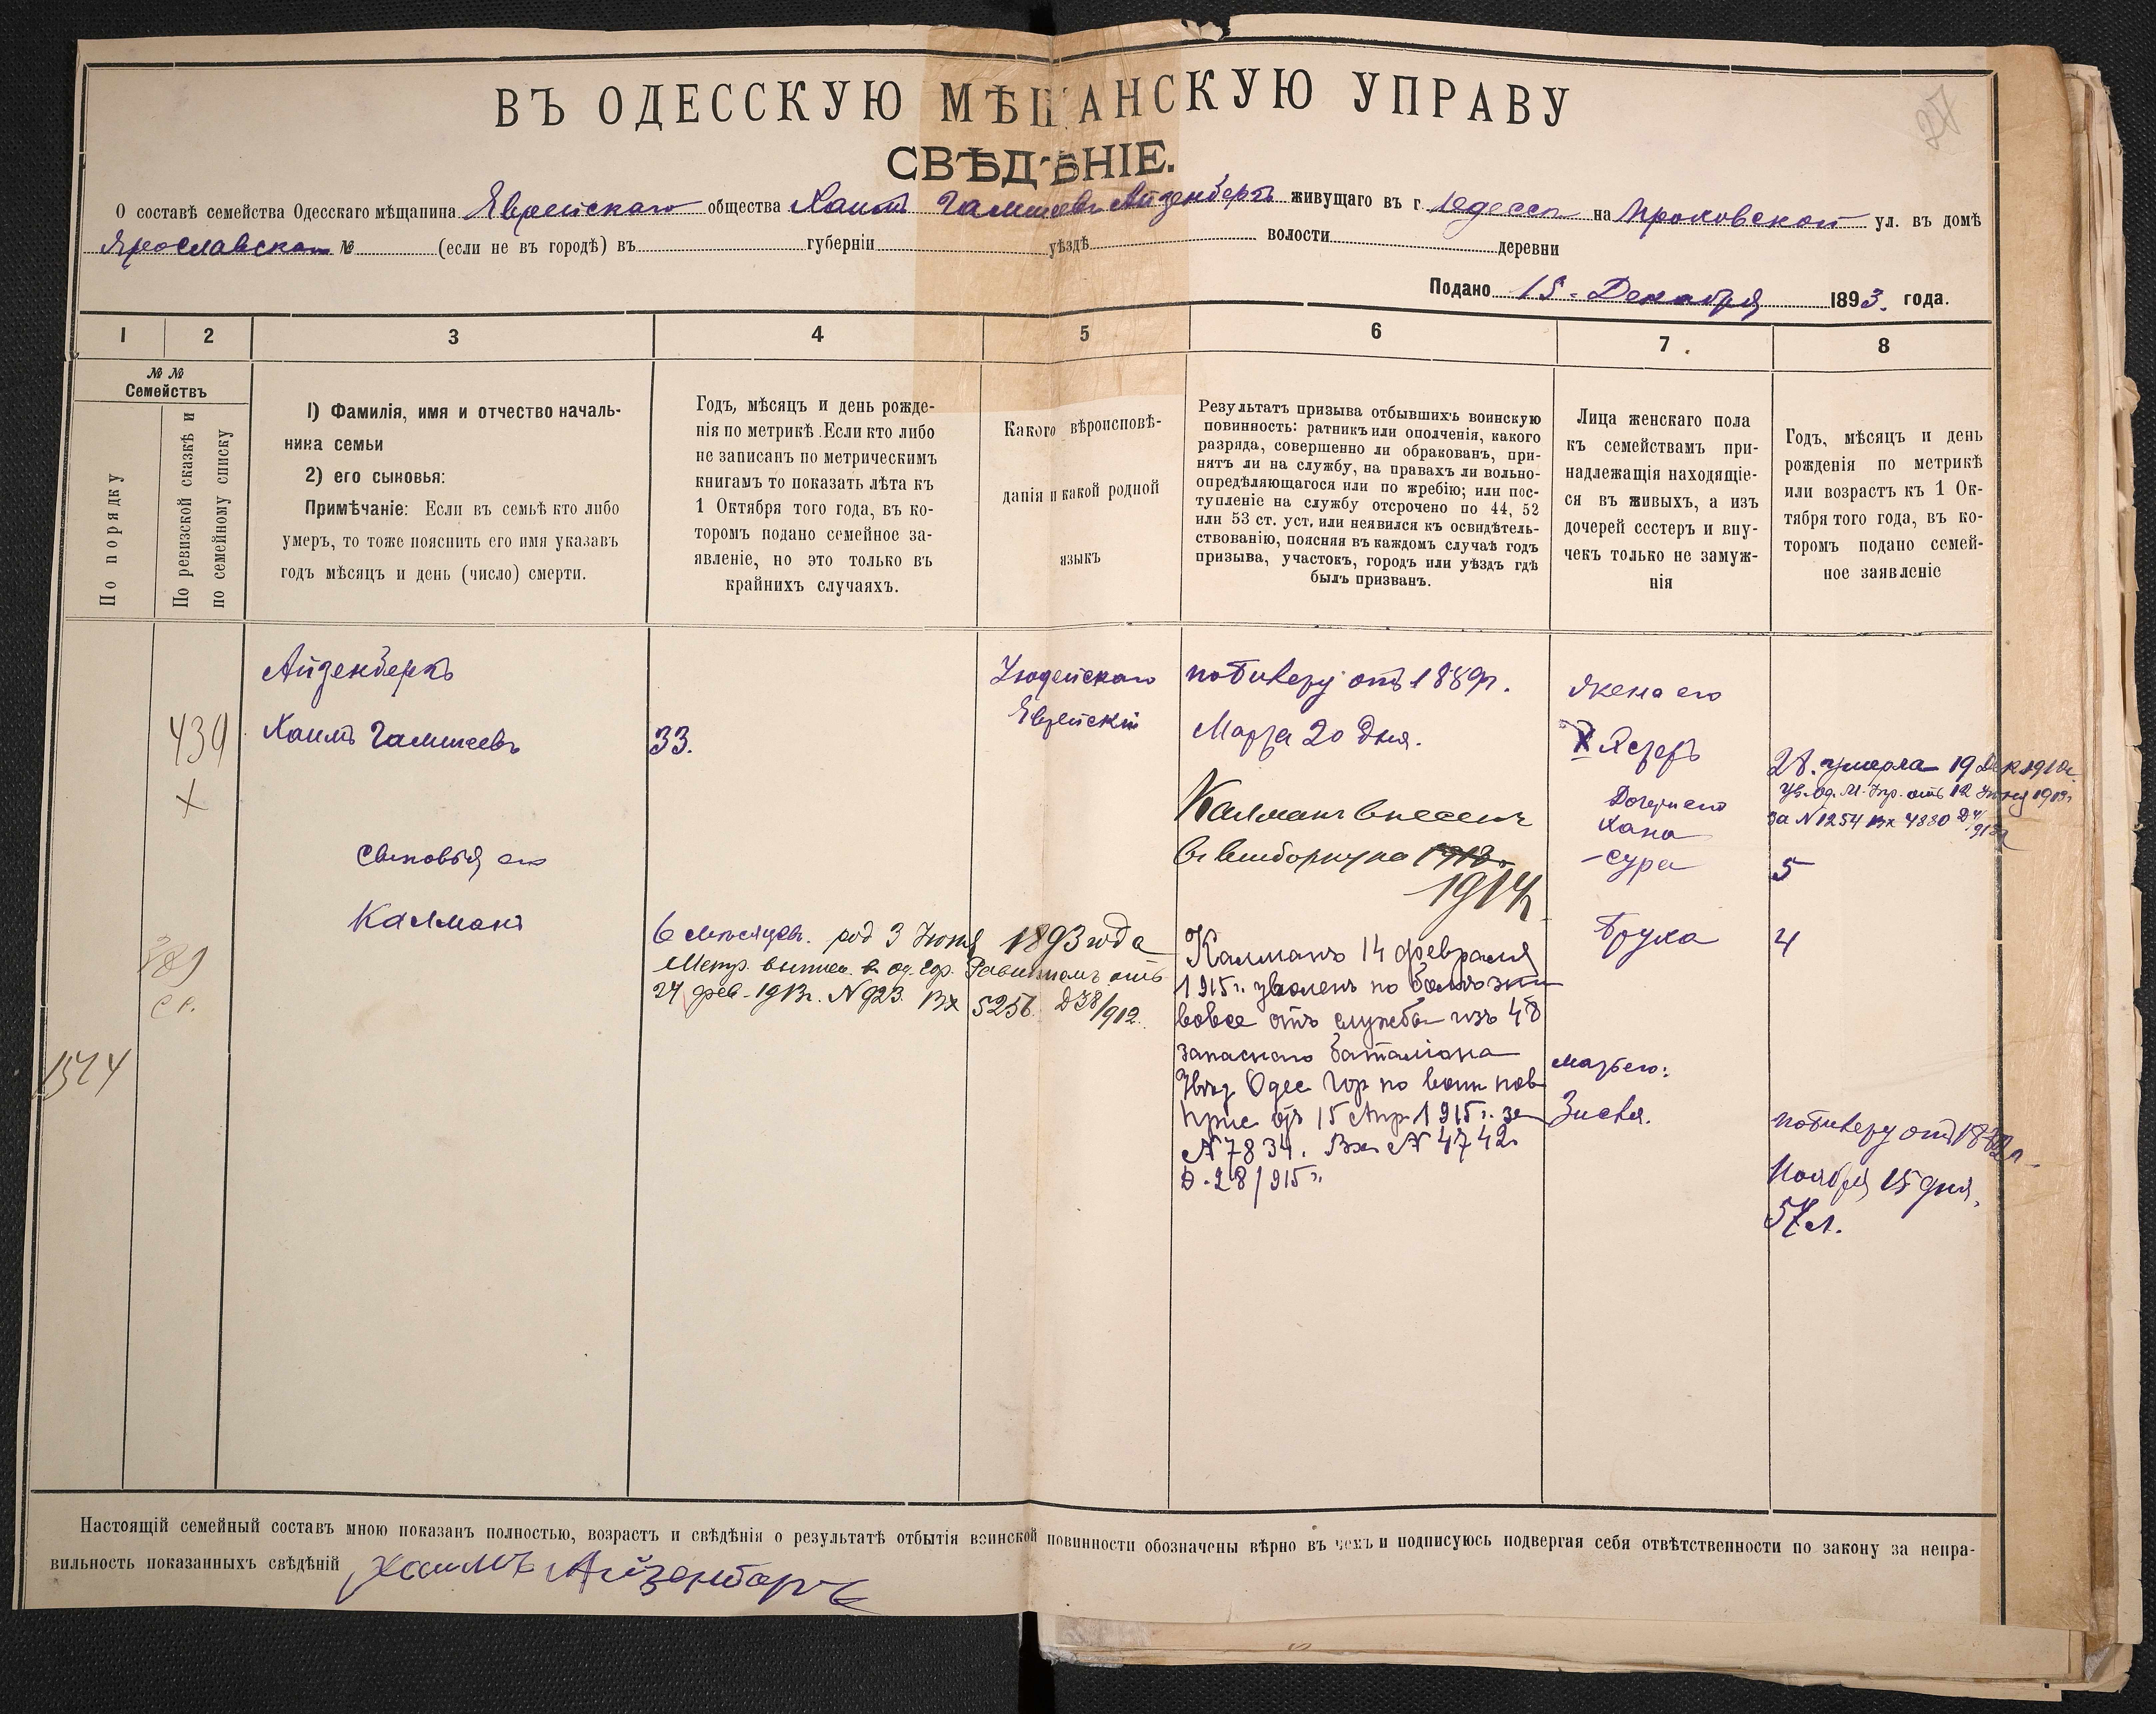 27
ВЪ ОДЕССКУЮ МѢЩАНСКУЮ УПРАВУ
СВѢДѢНІЕ.
О составѣ семейства Одесскаго мѣщанина Еврейскаго общества Хаимъ Айзенбергъ живущаго въ г. Одессѣ на Прохоровской ул. въ домѣ
Ярославскаго № (если не въ городѣ) въ губерніи уѣздѣ волости деревни
Подано 15 Декабря 1893. года.
1 2 3 4 5 6 7 8
№ №
Семействъ
По порядку
По ревизской сказкѣ и
по семейному списку
1) Фамилія, имя и отчество началь-
ника семьи
2) его сыновья:
Примѣчаніе: Если въ семьѣ кто либо
умеръ, то тоже пояснить его имя указавъ
годъ мѣсяцъ и день (число) смерти.
Годъ, мѣсяцъ и день рожде-
нія по метрикѣ. Если кто либо
не записанъ по метрическимъ
книгамъ то показать лѣта къ
1 Октября того года, въ ко-
торомъ подано семейное за-
явленіе, но это только въ
крайнихъ случаяхъ.
Какого вѣроисповѣ-
данія и какой родной
языкъ
Результатъ призыва отбывшихъ воинскую
повинность: ратникъ или ополченія, какого
разряда, совершенно ли обракованъ, при-
нятъ ли на службу, на правахъ ли вольно-
опредѣляющагося или по жребію; или пос-
тупленіе на службу отсрочено по 44, 52
или 53 ст. уст. или неявился къ освидѣтель-
ствованію, поясняя въ каждомъ случаѣ годъ
призыва, участокъ, городъ или уѣздъ гдѣ
былъ призванъ.
Лица женскаго пола
къ семействамъ при-
надлежащія находящіе-
ся въ живыхъ, а изъ
дочерей сестеръ и вну-
чекъ только не замуж-
нія
Годъ, мѣсяцъ и день
рожденія по метрикѣ
или возрастъ къ 1 Ок-
тября того года, въ ко-
торомъ подано семей-
ное заявленіе
Айзенберкъ
Хаимъ
439
X
33.
Іюдейскаго
Еврейскій
по билету отъ 1889 г.
Марта 20 дня.
Жена его
X Эстеръ
28. умерла 19 Дек 1910 г.
Ув. Од. М. Упр. отъ 12 1913 г.
за N 1254 Вх 4880
Дочери его
Хана
-сура
5
Бруха
4
Калманъ внесенъ
въ выборку на 1913 г.
1914
сыновья его
Калманъ
6 мѣсяцевъ. род 3 Іюня 1893 года
Метр. выпись. Од. Гор. Равиномъ отъ
24 фев. 1913 г. N 923. Вх 5256. Д 38/912.
389
1574
Калманъ 14 февраля
1915 г. уволенъ по болѣзни
вовсе отъ службы изъ 48
запаснаго баталіона
Извѣщ Одес Гор по воин пов
прис отъ 15 Апр 1915 г. за
N 7834. Вх N 4742
Д. 28/915 г.
мать его:
Зисля.
по билету отъ
Ноября 15 дня,
57 л.
Настоящій семейный составъ мною показанъ полностью, возрастъ и свѣдѣнія о результатѣ отбытія воинской повинности обозначены вѣрно въ чемъ и подписуюсь подвергая себя отвѣтственности по закону за непра-
вильность показанныхъ свѣдѣній Хаимъ Айзенбаргъ